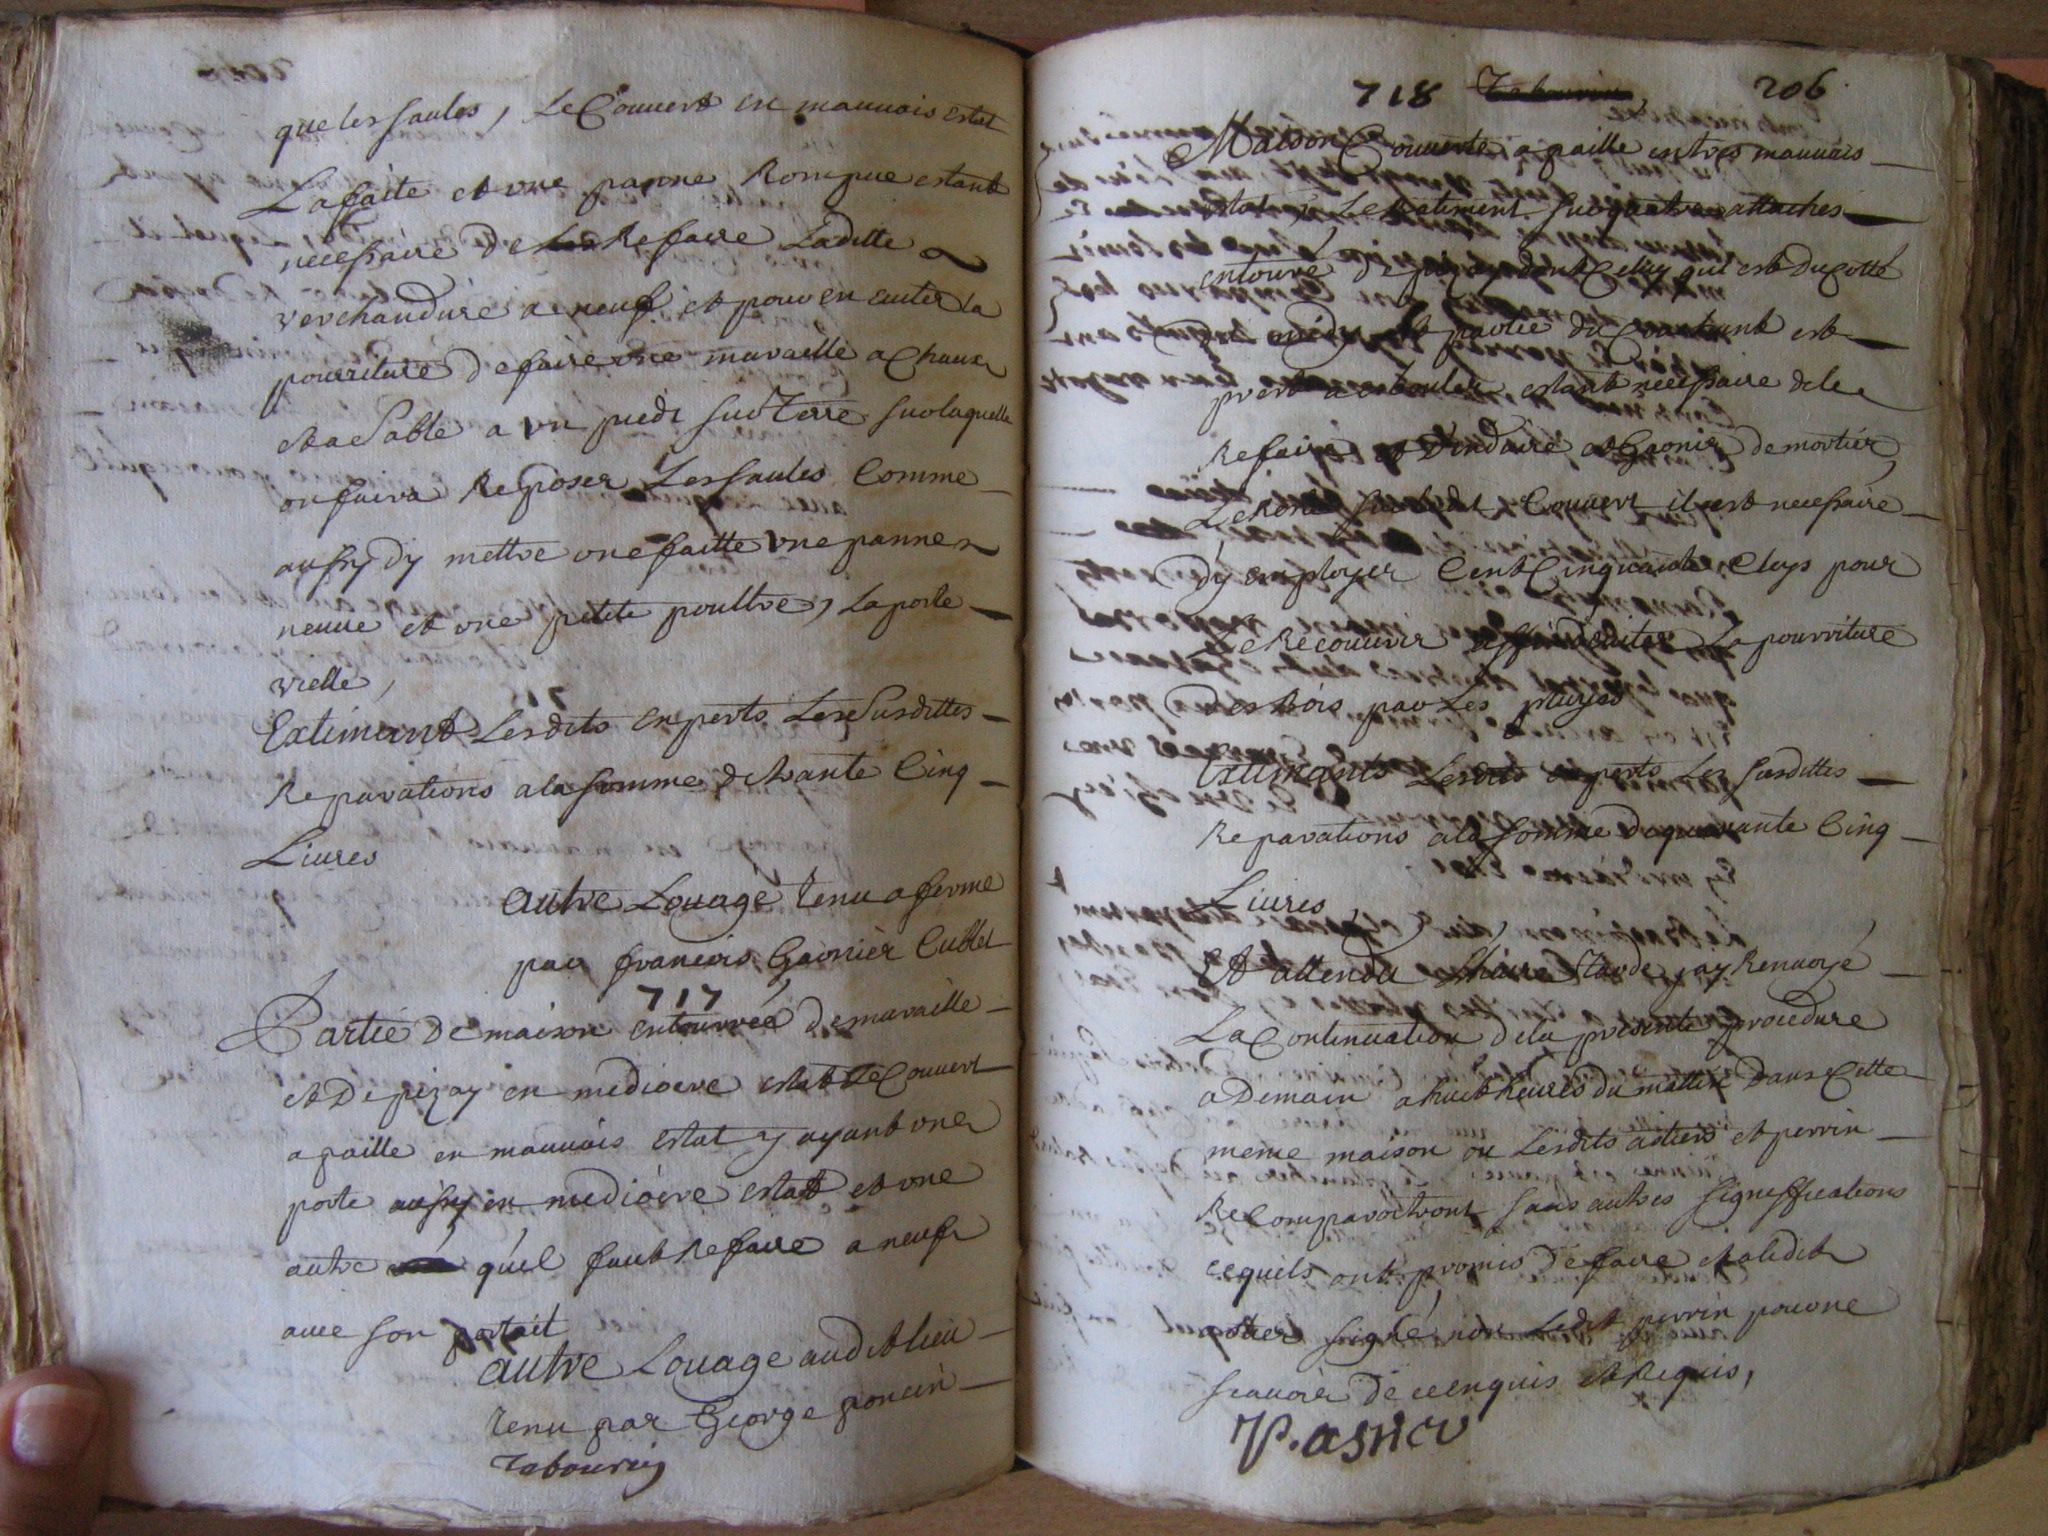 que les saules, Le Couvert en mauvais estat
La faite et une panne Rompue estant
necessaire De Refaire Laditte
verchandure a neuf et pour en euiter la
pourriture de faire une muraille a Chaux
et a Sable a un pied sur Terre sur laquelle
on faira Reposer Les saules Comme
aussy dy mettre une faitte une panne
neuue et une petite poultre, La porte
vielle,
Extimant Lesdits experts Les Susdittes
Reparations a la somme de Cinq
Liures
autre Louage tenu a ferme
par francois Garnier Cublet
717
Partie De maison entourrée de muraille
et De pizay en mediocre estat Le Couvert
a paille en mauuais estat y ayant une
porte aussy en mediocre estat et une
autre qu'il faut Refaire a neuf
auec son portait
autre Louage audit lieu
tenu par George poncin
Tabourin
718 206
Maison Couuerte a paille en tres mauuais
estat, Le Batiment sur quatre attaches
entouré de pizay dont Celuy qui est Du Cotté
de et partie du Couchant est
prest a estant necessaire de le
Refaire et D'enduire et Garnir de mortier
Le Reste sur ledit Couuert il est necessaire
D'y employer Cent Cinquante Cluys pour
Le Recouurir affin d'euiter La pourriture
Des bois par Les pluyes
Extimants Lesdits experts Les susdittes
Reparations a la somme de quarante Cinq
Liures,
Et attendu L'heure tarde jay Renuoyé
La Continuation de la presente procedure
a Demain a huit heures du mattin Dans Cette
meme maison ou Lesdits astiers et perrin
Recomparoitront sans autres Signiffications
ce quils ont promis De faire et aledit
astier signé, non Ledit perrin pour ne
scauoir De ce enquis et Requis,
P. astier